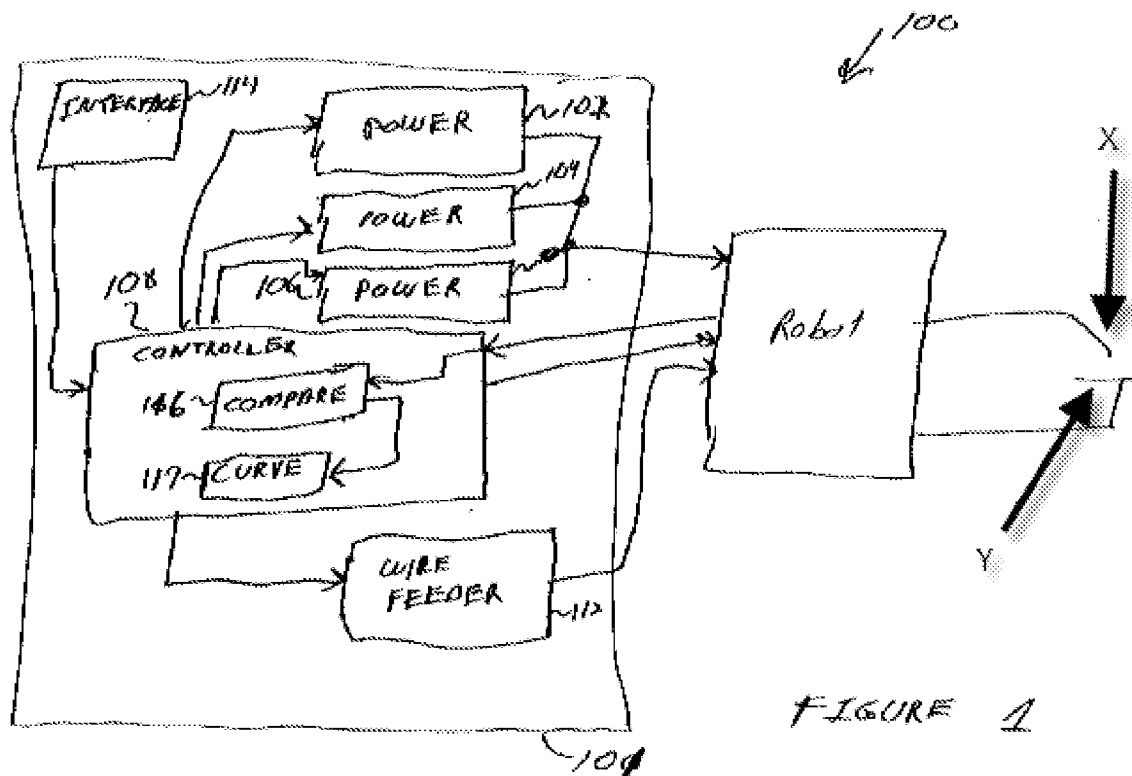 100
INTERFACE
114
POWER
102
X
POWER
104
106
POWER
108
CONTROLLER
Robot
COMPARE
117
CURVE
Y
WIRE
FEEDER
112
FIGURE 1